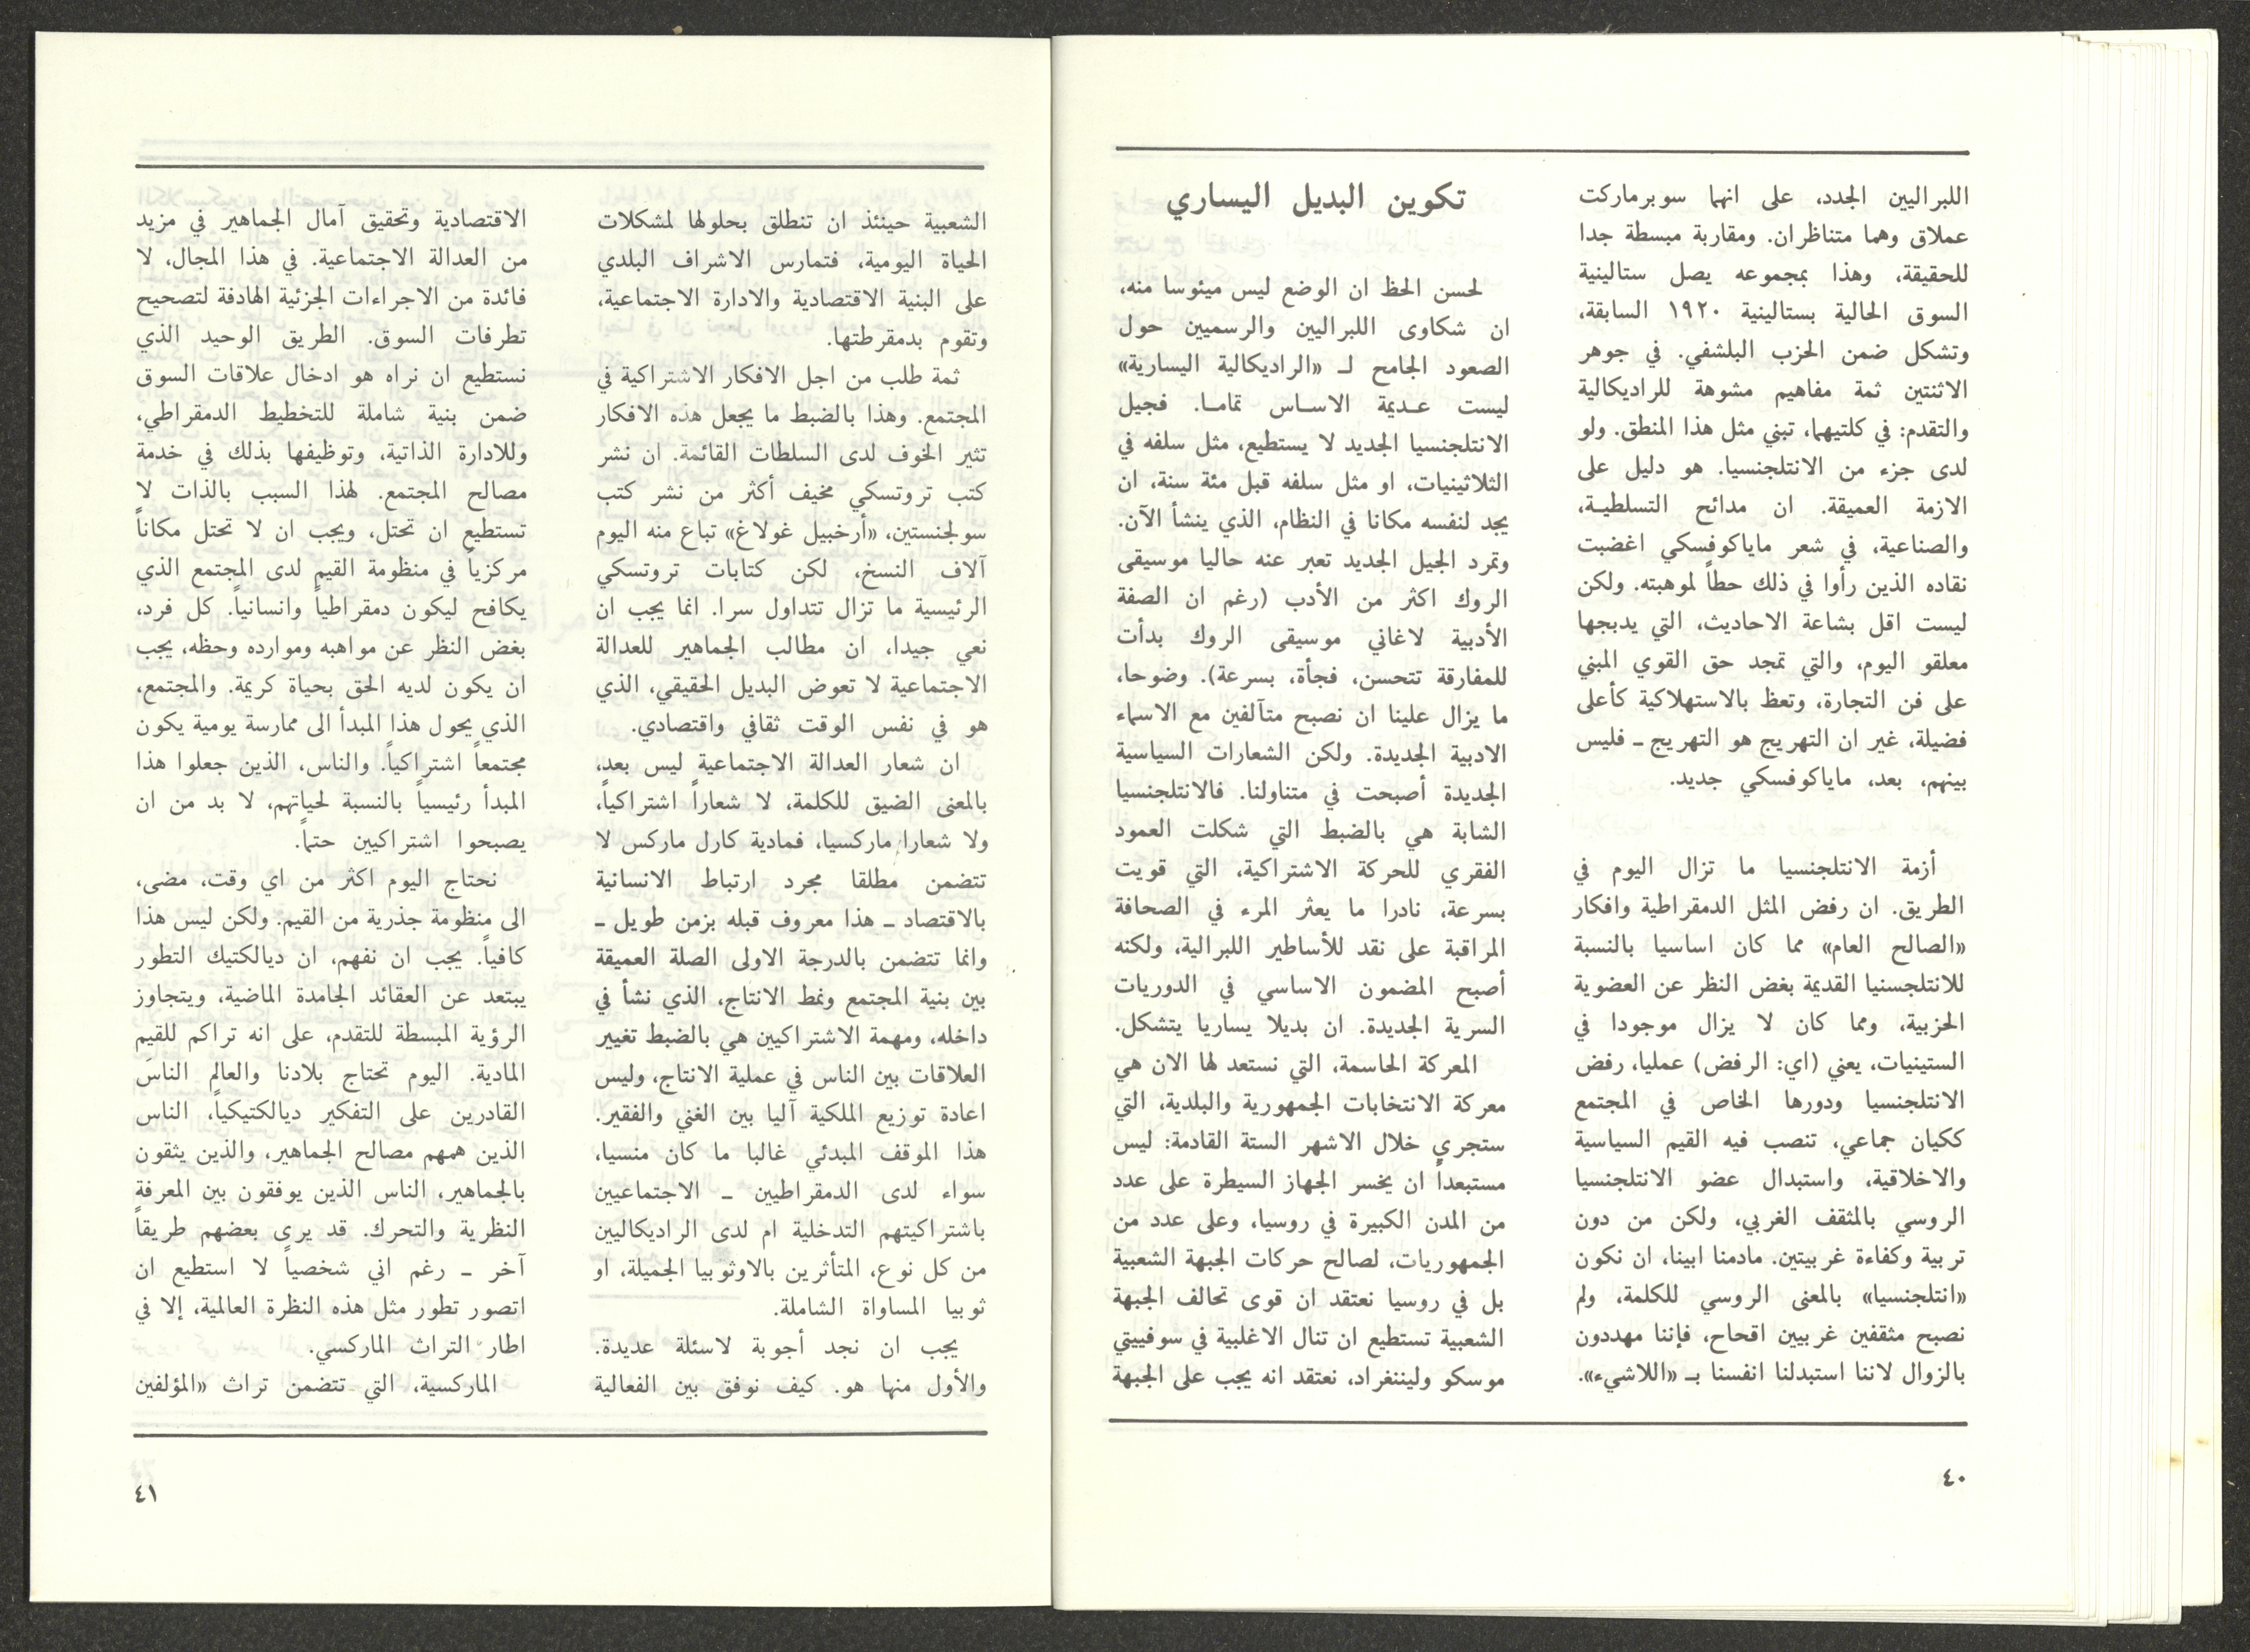 اللبراليين الجدد، على انهما سوبرماركت
عملاق وهما متناظران. ومقاربة مبسطة جدا
للحقيقة، وهذا بمجموعه يصل ستالينية
السوق الحالية بستالينية ١٩٢٠ السابقة،
وتشكل ضمن الحزب البلشفي. في جوهر
الاثنتين ثمة مفاهيم مشوهة للراديكالية
والتقدم: في كلتيهما، تبني مثل هذا المنطق. ولو
لدى جزء من الانتلجنسيا. هو دليل على
الازمة العميقة. ان مدائح التسلطية،
والصناعية، في شعر ماياكوفسكي اغضبت
نقاده الذين رأوا في ذلك حطاً لموهبته. ولكن
ليست اقل بشاعة الاحاديث، التي يدبجها
معلقو اليوم، والتي تمجد حق القوي المبني
على فن التجارة، وتعظ بالاستهلاكية كأعلى
فضيلة، غير ان التهريج هو التهريج ـ فليس
بينهم، بعد، ماياكوفسكي جديد.
أزمة الانتلجنسيا ما تزال اليوم في
الطريق. ان رفض المثل الدمقراطية وافكار
«الصالح العام» مما كان اساسيا بالنسبة
للانتلجسنيا القديمة بغض النظر عن العضوية
الحزبية، ومما كان لا يزال موجودا في
الستينيات، يعني (اي: الرفض) عمليا، رفض
الانتلجنسيا ودورها الخاص في المجتمع
ككيان جماعي، تنصب فيه القيم السياسية
والاخلاقية، واستبدال عضو الانتلجنسيا
الروسي بالمثقف الغربي، ولكن من دون
تربية وكفاءة غربيتين. مادمنا ابينا، ان نكون
«انتلجنسيا» بالمعنى الروسي للكلمة، ولم
نصبح مثقفين غربيين اقحاح، فإننا مهددون
بالزوال لاننا استبدلنا انفسنا بـ «اللاشيء».
تكوين البديل اليساري
لحسن الحظ ان الوضع ليس ميئوسا منه،
ان شكاوى اللبراليين والرسميين حول
الصعود الجامح لـ «الراديكالية اليسارية»
ليست عـديمة الاسـاس تمامـا. فجيل
الانتلجنسيا الجديد لا يستطيع، مثل سلفه في
الثلاثينيات، او مثل سلفه قبل مئة سنة، ان
يجد لنفسه مكانا في النظام، الذي ينشأ الآن.
وتمرد الجيل الجديد تعبر عنه حاليا موسيقى
الروك اكثر من الأدب (رغم ان الصفة
الأدبية لاغاني موسيقى الروك بدأت
للمفارقة تتحسن، فجأة، بسرعة). وضوحا،
ما يزال علينا ان نصبح متآلفين مع الاسماء
الادبية الجديدة. ولكن الشعارات السياسية
الجديدة أصبحت في متناولنا. فالانتلجنسيا
الشابة هي بالضبط التي شكلت العمود
الفقري للحركة الاشتراكية، التي قويت
بسرعة، نادرا ما يعثر المرء في الصحافة
المراقبة على نقد للأساطير اللبرالية، ولكنه
أصبح المضمون الاساسي في الدوريات
السرية الجديدة. ان بديلا يساريا يتشكل.
المعركة الحاسمة، التي نستعد لها الان هي
معركة الانتخابات الجمهورية والبلدية، التي
ستجري خلال الاشهر الستة القادمة: ليس
مستبعداً ان يخسر الجهاز السيطرة على عدد
من المدن الكبيرة في روسيا، وعلى عدد من
الجمهوريات، لصالح حركات الجبهة الشعبية
بل في روسيا نعتقد ان قوى تحالف الجبهة
الشعبية تستطيع ان تنال الاغلبية في سوفييتي
موسكو وليننغراد، نعتقد انه يجب على الجبهة
٤٠
الشعبية حينئذ ان تنطلق بحلولها لمشكلات
الحياة اليومية، فتمارس الاشراف البلدي
على البنية الاقتصادية والادارة الاجتماعية،
وتقوم بدمقرطتها.
ثمة طلب من اجل الافكار الاشتراكية في
المجتمع. وهذا بالضبط ما يجعل هذه الافكار
تثير الخوف لدى السلطات القائمة. ان نشر
كتب تروتسكي مخيف أكثر من نشر كتب
سولجنستين، «أرخبيل غولاغ» تباع منه اليوم
آلاف النسخ، لكن كتابات تروتسكي
الرئيسية ما تزال تتداول سرا. انما يجب ان
نعي جيدا، ان مطالب الجماهير للعدالة
الاجتماعية لا تعوض البديل الحقيقي، الذي
هو في نفس الوقت ثقافي واقتصادي.
ان شعار العدالة الاجتماعية ليس بعد،
بالمعنى الضيق للكلمة، لا شعاراً اشتراكياً،
ولا شعارا ماركسيا، فمادية كارل ماركس لا
تتضمن مطلقا مجرد ارتباط الانسانية
بالاقتصاد ـ هذا معروف قبله بزمن طويل ـ
وانما تتضمن بالدرجة الاولى الصلة العميقة
بين بنية المجتمع ونمط الانتاج، الذي نشأ في
داخله، ومهمة الاشتراكيين هي بالضبط تغيير
العلاقات بين الناس في عملية الانتاج، وليس
اعادة توزيع الملكية آليا بين الغني والفقير.
هذا الموقف المبدئي غالبا ما كان منسيا،
سواء لدى الدمقراطيين ـ الاجتماعيين
باشتراكيتهم التدخلية ام لدى الراديكاليين
من كل نوع، المتأثرين بالاوثوبيا الجميلة، او
ثوبيا المساواة الشاملة.
يجب ان نجد أجوبة لاسئلة عديدة.
والأول منها هو. كيف نوفق بين الفعالية
الاقتصادية وتحقيق آمال الجماهير في مزيد
من العدالة الاجتماعية. في هذا المجال، لا
فائدة من الاجراءات الجزئية الهادفة لتصحيح
تطرفات السوق. الطريق الوحيد الذي
نستطيع ان نراه هو ادخال علاقات السوق
ضمن بنية شاملة للتخطيط الدمقراطي،
وللادارة الذاتية، وتوظيفها بذلك في خدمة
مصالح المجتمع. لهذا السبب بالذات لا
تستطيع ان تحتل، ويجب ان لا تحتل مكاناً
مركزياً في منظومة القيم لدى المجتمع الذي
يكافح ليكون دمقراطياً وانسانياً. كل فرد،
بغض النظر عن مواهبه وموارده وحظه، يجب
ان يكون لديه الحق بحياة كريمة. والمجتمع،
الذي يحول هذا المبدأ الى ممارسة يومية يكون
مجتمعاً اشتراكياً. والناس، الذين جعلوا هذا
المبدأ رئيسياً بالنسبة لحياتهم، لا بد من ان
يصبحوا اشتراكيين حتماً.
نحتاج اليوم اكثر من اي وقت، مضى،
الى منظومة جذرية من القيم. ولكن ليس هذا
كافياً. يجب ان نفهم، ان ديالكتيك التطور
يبتعد عن العقائد الجامدة الماضية، ويتجاوز
الرؤية المبسطة للتقدم، على انه تراكم للقيم
المادية. اليوم تحتاج بلادنا والعالم الناسَ
القادرين على التفكير ديالكتيكياً، الناس
الذين همهم مصالح الجماهير، والذين يثقون
بالجماهير، الناس الذين يوفقون بين المعرفة
النظرية والتحرك. قد يرى بعضهم طريقاً
آخر ـ رغم اني شخصياً لا استطيع ان
اتصور تطور مثل هذه النظرة العالمية، إلا في
اطار التراث الماركسي.
الماركسية، التي تتضمن تراث «المؤلفين
٤١